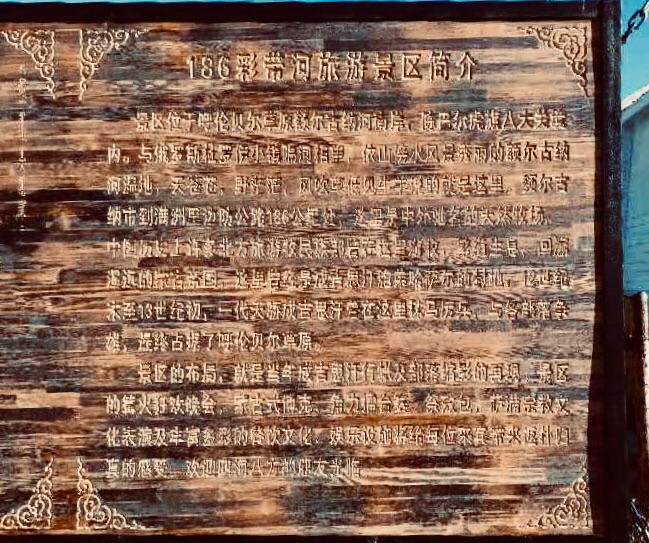 186彩带河旅游景区简介
景区位于呼伦贝尔草原额尔古纳河南岸,陈巴尔虎旗八大关
内。与俄罗斯 小镇隔河相望,依山傍水风景秀丽的额尔古纳
河湿地,天苍苍,野茫茫,风吹草低见牛羊说的就是这里。额尔古
纳市到满洲里边防公路186公里处,这里是中外驰名的天然牧场。
中国历史上许多北方游牧民族部落在这里游牧,繁衍生息。回溯
遥远的蒙古帝国,这里曾经是成吉思汗胞弟哈萨尔的封地,12世纪
末至13世纪初,一代天骄成吉思汗曾在这里秣马厉兵,与各部落争
雄,最终占据了呼伦贝尔草原。
景区的布局,就是当年成吉思汗行 部落 的再现,景区
的篝火狂欢晚会,蒙古式 ,角力擂台赛,祭敖包,萨满宗教文
化表演及丰富多彩的餐饮文化、娱乐设施将给每位来宾带来返朴归
真的感觉。欢迎四海八方 朋友光临